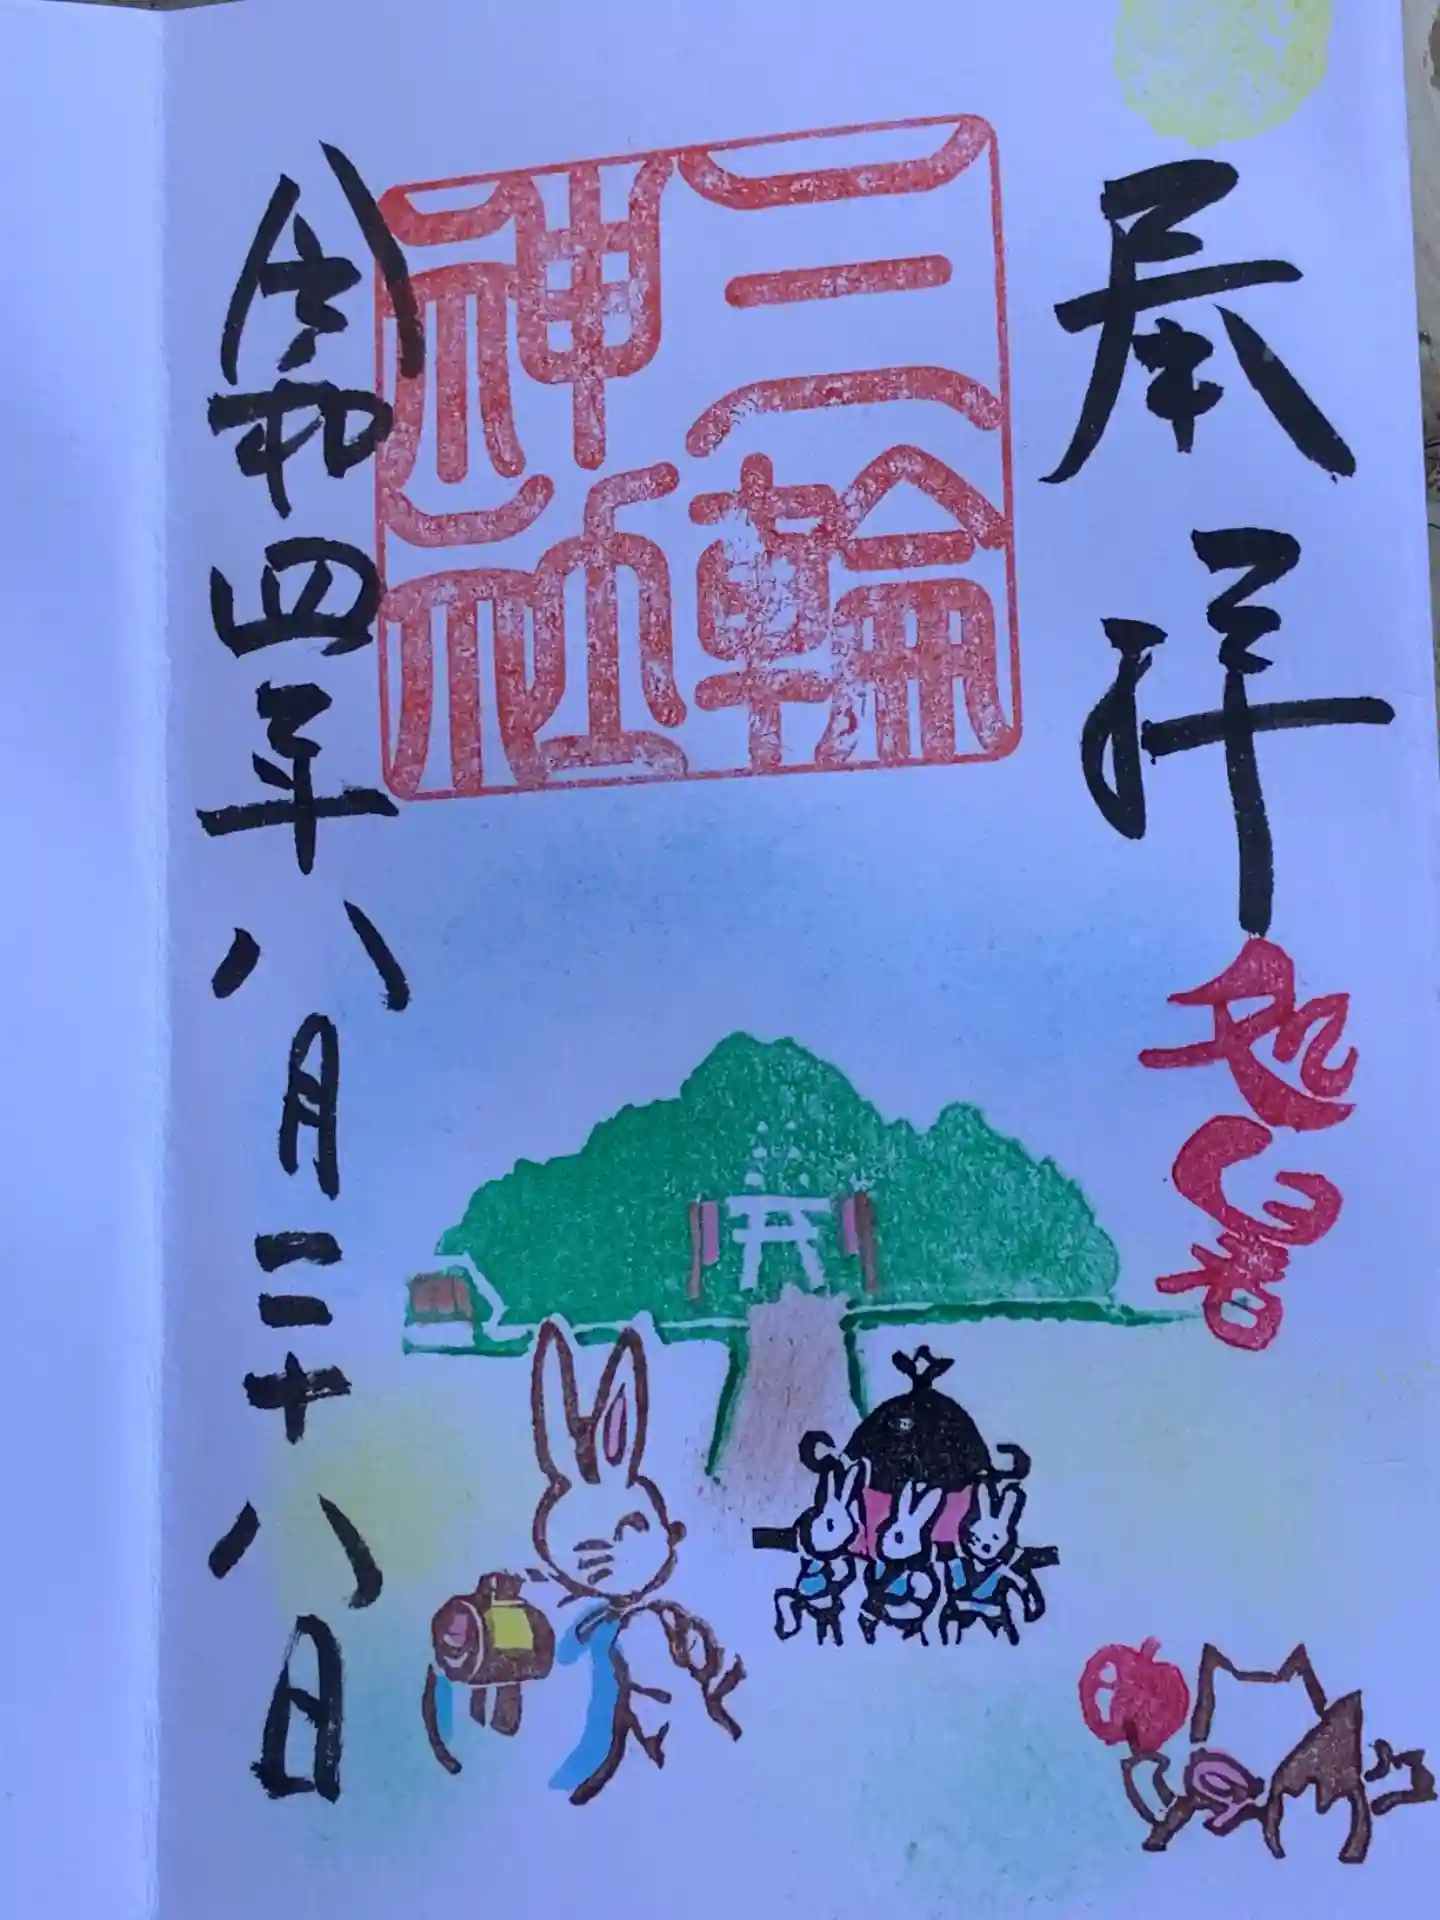 奉拝
三輪
神社
令和四年八月二十八日